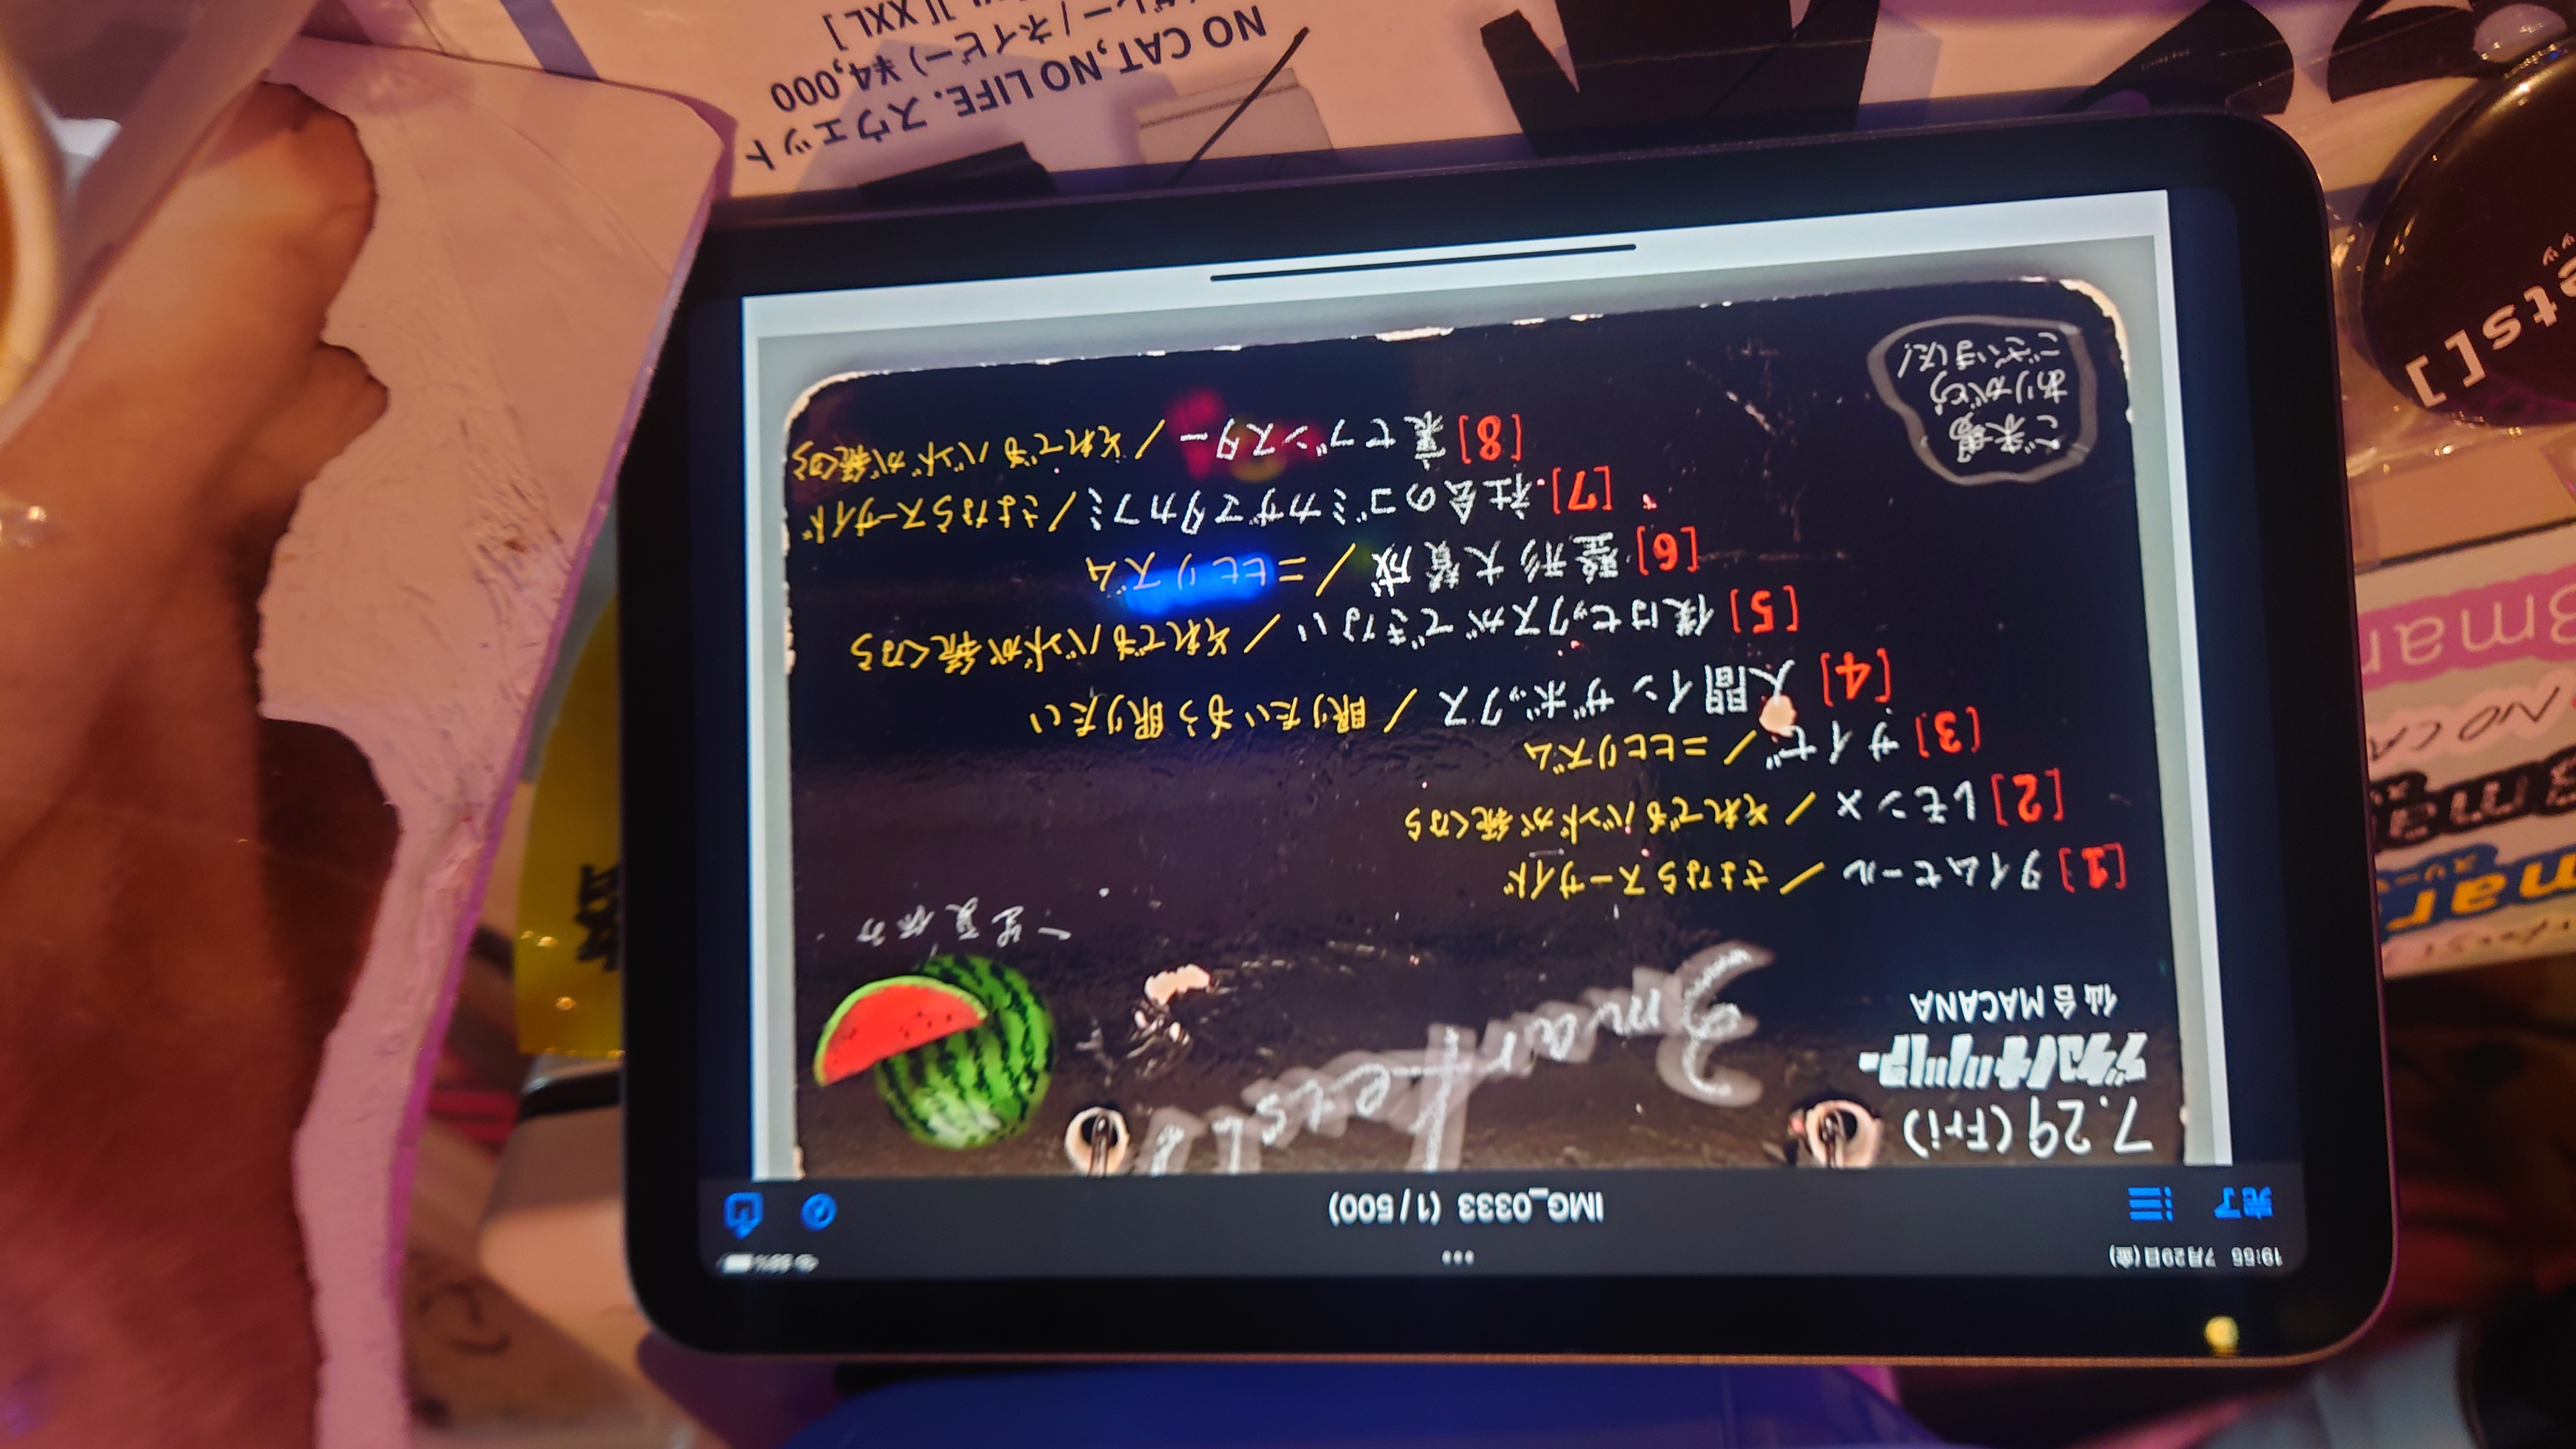 19:55 7月29日(金)
88%
完了
IMG_0333 (1/500)
7.29(Fri)
仙台MACANA
3markets[ ]
一生夏休み
[1] タイムセール / さよならスーサイド
[2] レモン× / それでもバンドが続くなら
[3] サイゼ / ニヒヒリズム
[4] 人間インザボックス / 眠りたいもう眠りたい
[5] 僕はセックスができない / それでもバンドが続くなら
[6] 整形大賛成 / ニヒヒリズム
[7] 社会のゴミカザマタカフミ / さよならスーサイド
[8] 裏セブンスター / それでもバンドが続くなら
ご来場
ありがとう
ございました!
mar
スリー
3ma
NO CA
3mar
ets[ ]
ッツ
NO CAT,NO LIFE. スウェット
グレー / ネイビー) ¥4,000
][ XXL ]